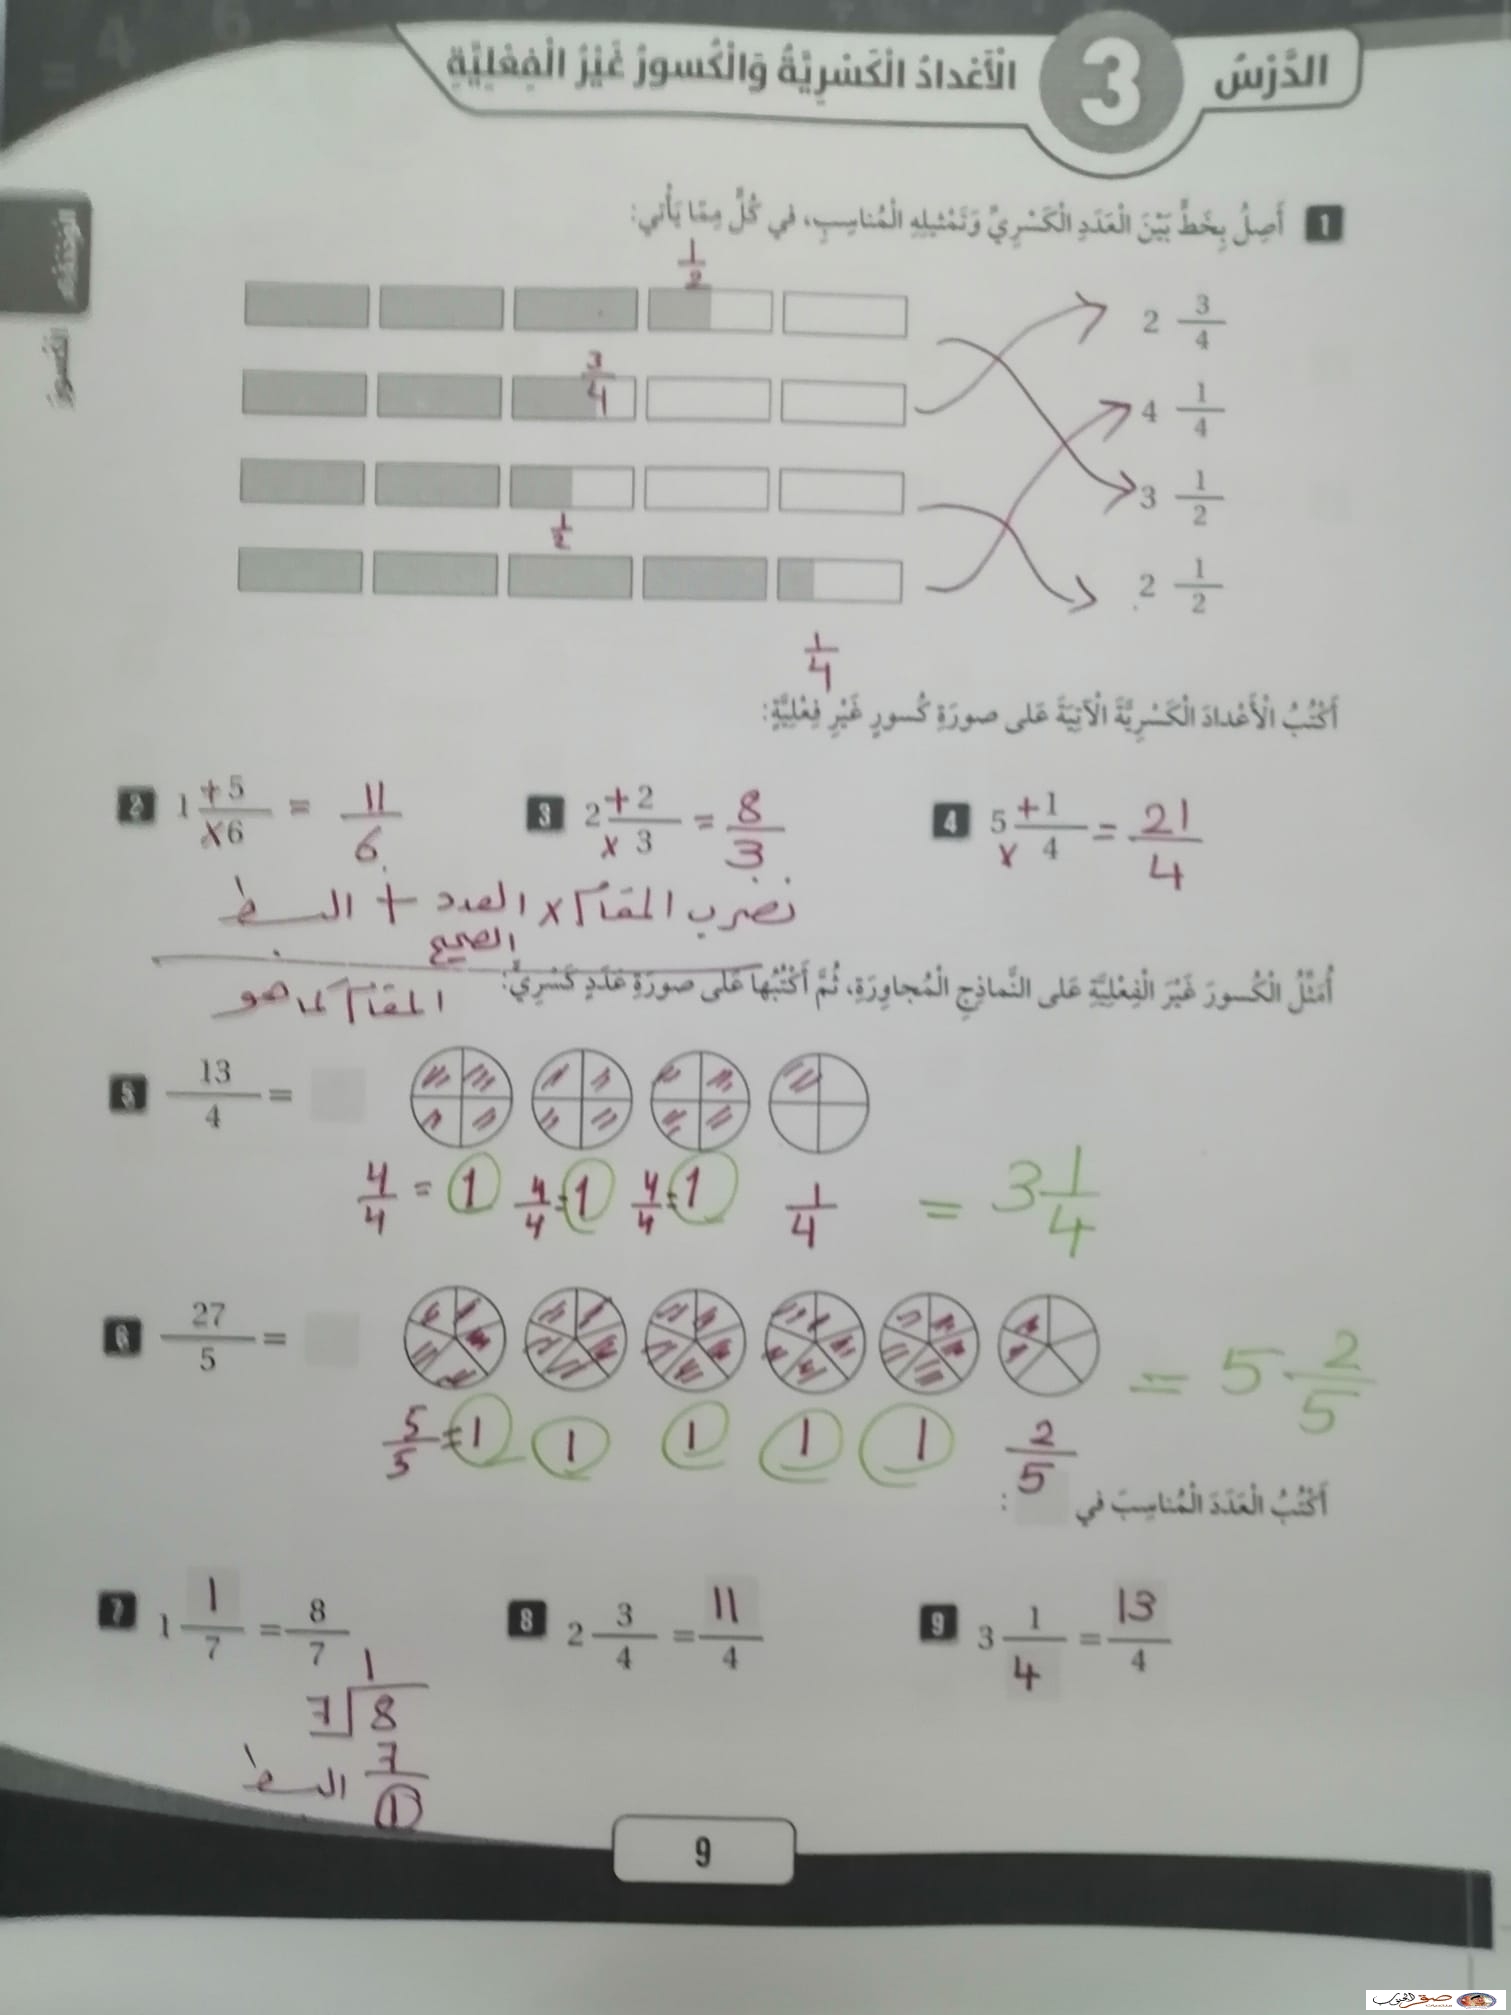 الدَّرْسُ 3 الْأَعْدادُ الْكَسْرِيَّةُ وَالْكُسورُ غَيْرُ الْفِعْلِيَّةِ
الْكُسورُ
1 أَصِلُ بِخَطٍّ بَيْنَ الْعَدَدِ الْكَسْرِيِّ وَتَمْثيلِهِ الْمُناسِبِ، في كُلٍّ مِمّا يَأْتي:
1/2
2 3/4
3/4
4 1/4
3 1/2
1/2
2 1/2
1/4
أَكْتُبُ الْأَعْدادَ الْكَسْرِيَّةَ الْآتِيَةَ عَلى صورَةِ كُسورٍ غَيْرِ فِعْلِيَّةٍ:
2 1 +5/×6 = 11/6 3 2 +2/×3 = 8/3 4 5 +1/×4 = 21/4
نضرب المقام × العدد الصحيح + البسط
المقام كما هو
أُمَثِّلُ الْكُسورَ غَيْرَ الْفِعْلِيَّةِ عَلى النَّماذِجِ الْمُجاوِرَةِ، ثُمَّ أَكْتُبُها عَلى صورَةِ عَدَدٍ كَسْرِيٍّ:
5 13/4 =
4/4 = 1 4/4 = 1 4/4 = 1 1/4 = 3 1/4
6 27/5 =
= 5 2/5
5/5 = 1 1 1 1 1 2/5
أَكْتُبُ الْعَدَدَ الْمُناسِبَ في :
7 1 1/7 = 8/7 8 2 3/4 = 11/4 9 3 1/4 = 13/4
1
7 8
7
البسط 1
9